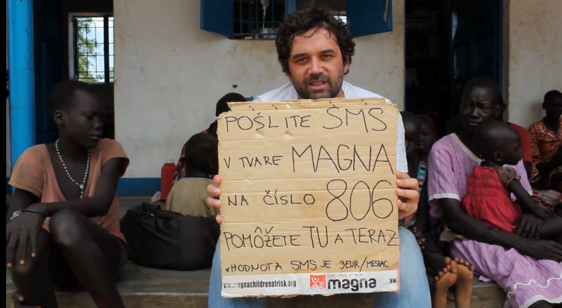 POŠLITE SMS
V TVARE MAGNA
NA ČÍSLO 806
POMÔŽETE TU A TERAZ
*HODNOTA SMS JE 3EUR/MESIAC
www.magnachildrenatrisk.org magna